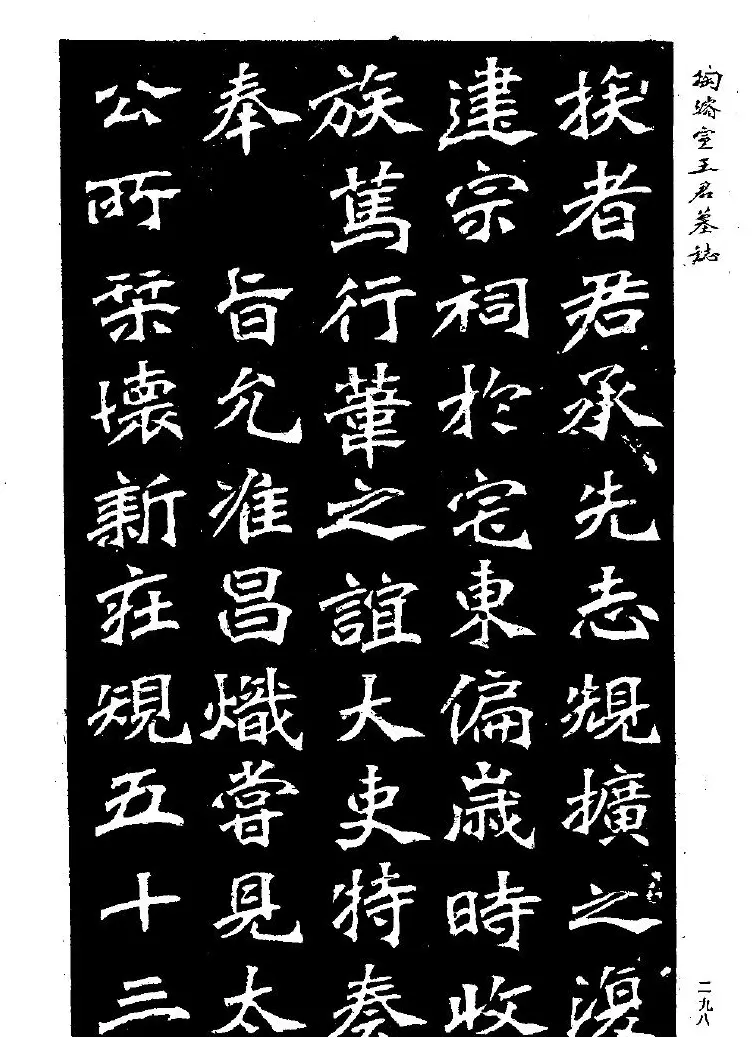 陶濬宣王君墓誌
挨者君承先志規擴之復
建宗祠於宅東偏歲時收
族篤行葦之誼大吏特奏
奉　旨允准昌熾嘗見太
公所栞壞新庄規五十三
二九八